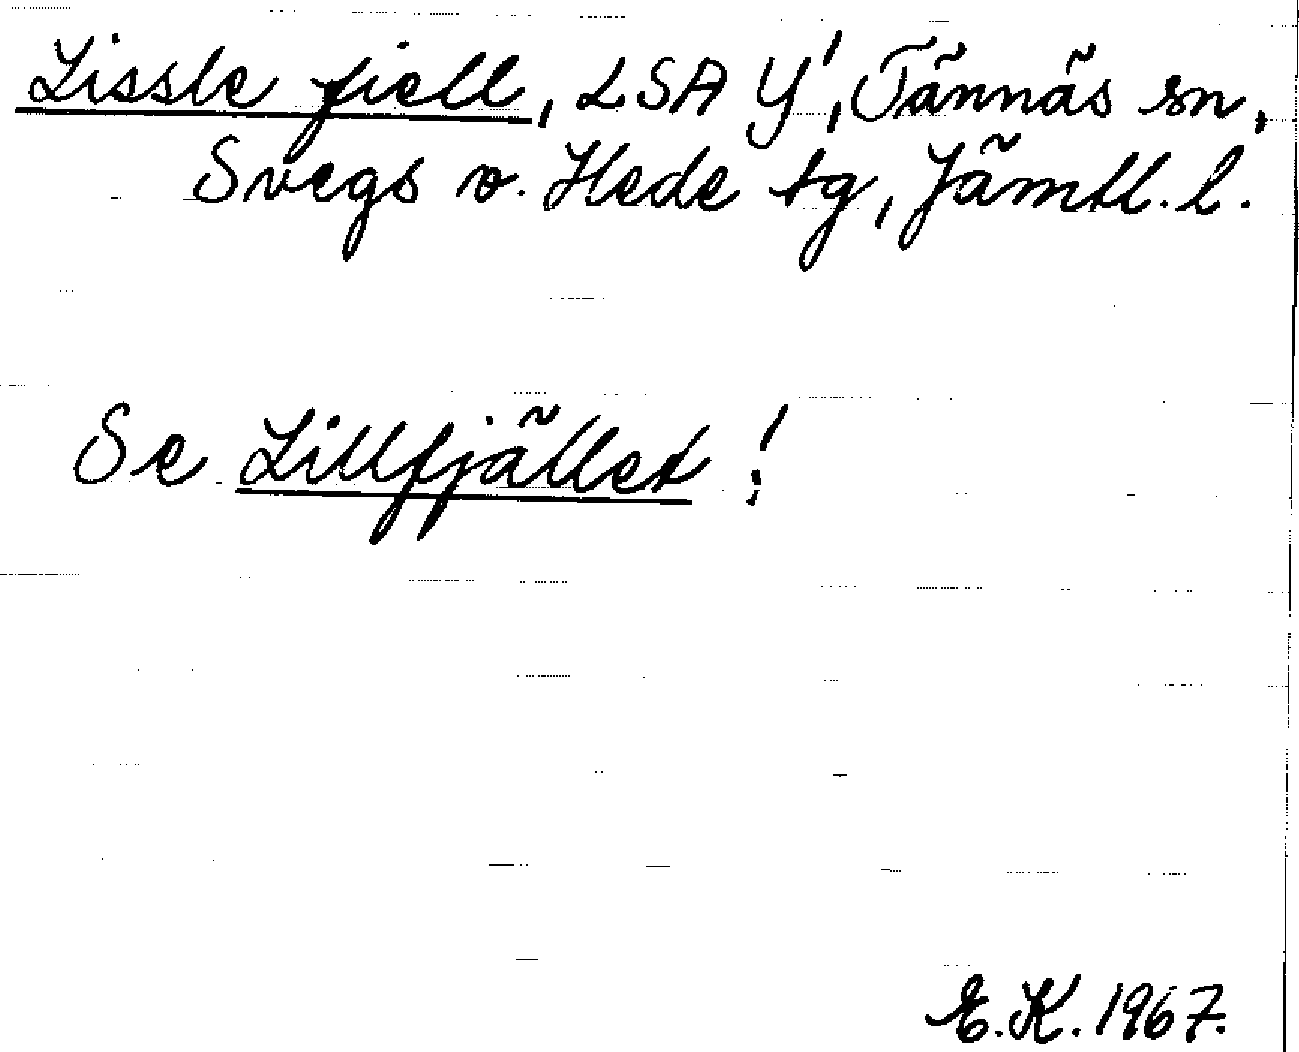 Lissle fiell, LSA Y', Tännäs sn,
Svegs o. Hede tg, Jämtl. l.
Se Lillfjället !
E.K. 1967.